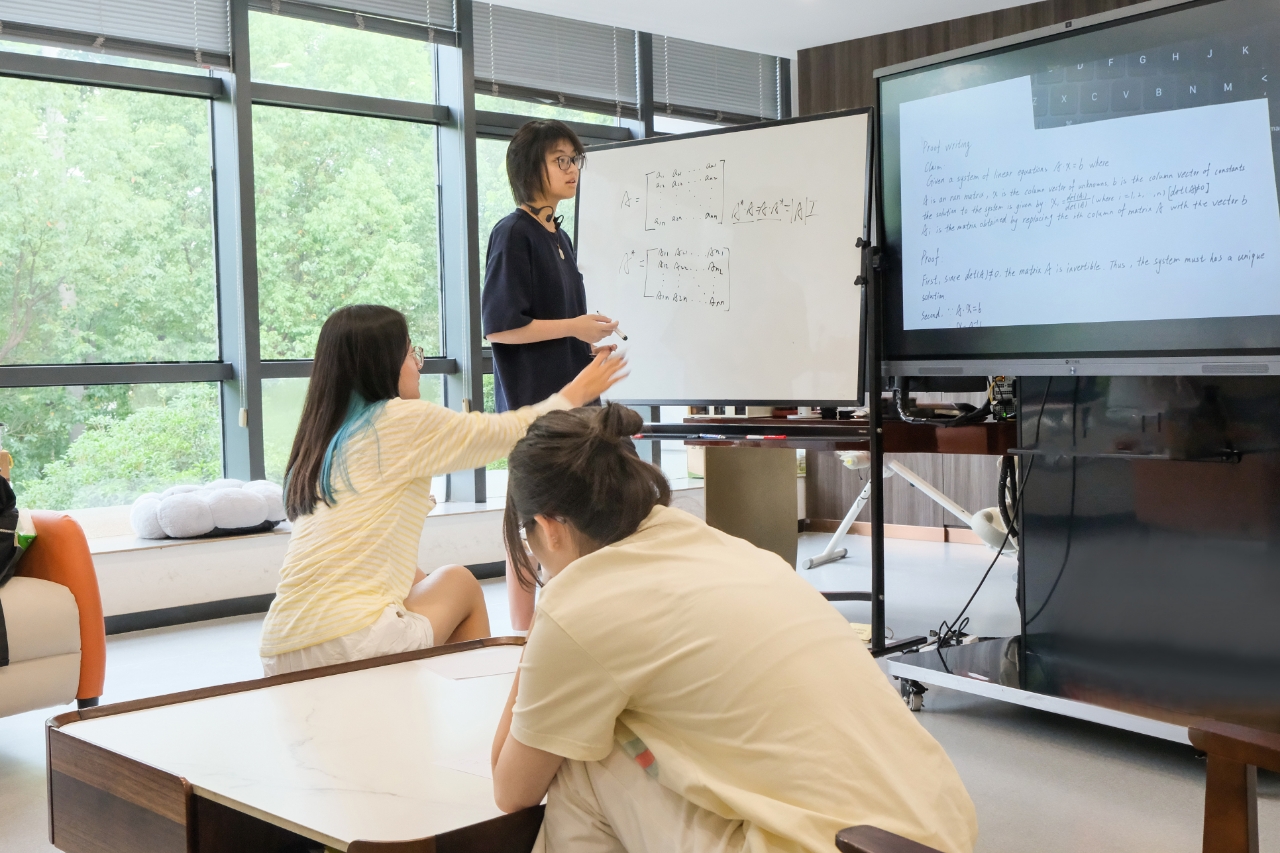 A =
a₁₁ a₁₂ ... a₁ₙ
A* A = A A* = |A| I
A* =
A₁₁ A₂₁ ... Aₙ₁
A₁₂ A₂₂ ... Aₙ₂
A₁ₙ A₂ₙ ... Aₙₙ
D F G H J K
Z X C V B N M <
Proof writing
Claim
Given a system of linear equations A x = b where
A is an nxn matrix, x is the column vector of unknowns, b is the column vector of constants
the solution to the system is given by
A₁ is the matrix obtained by replacing the ith column of matrix A with the vector b
Proof
First, since det(A)≠0. the matrix A is invertible. Thus, the system must has a unique
solution
Second. ∵ A x = b